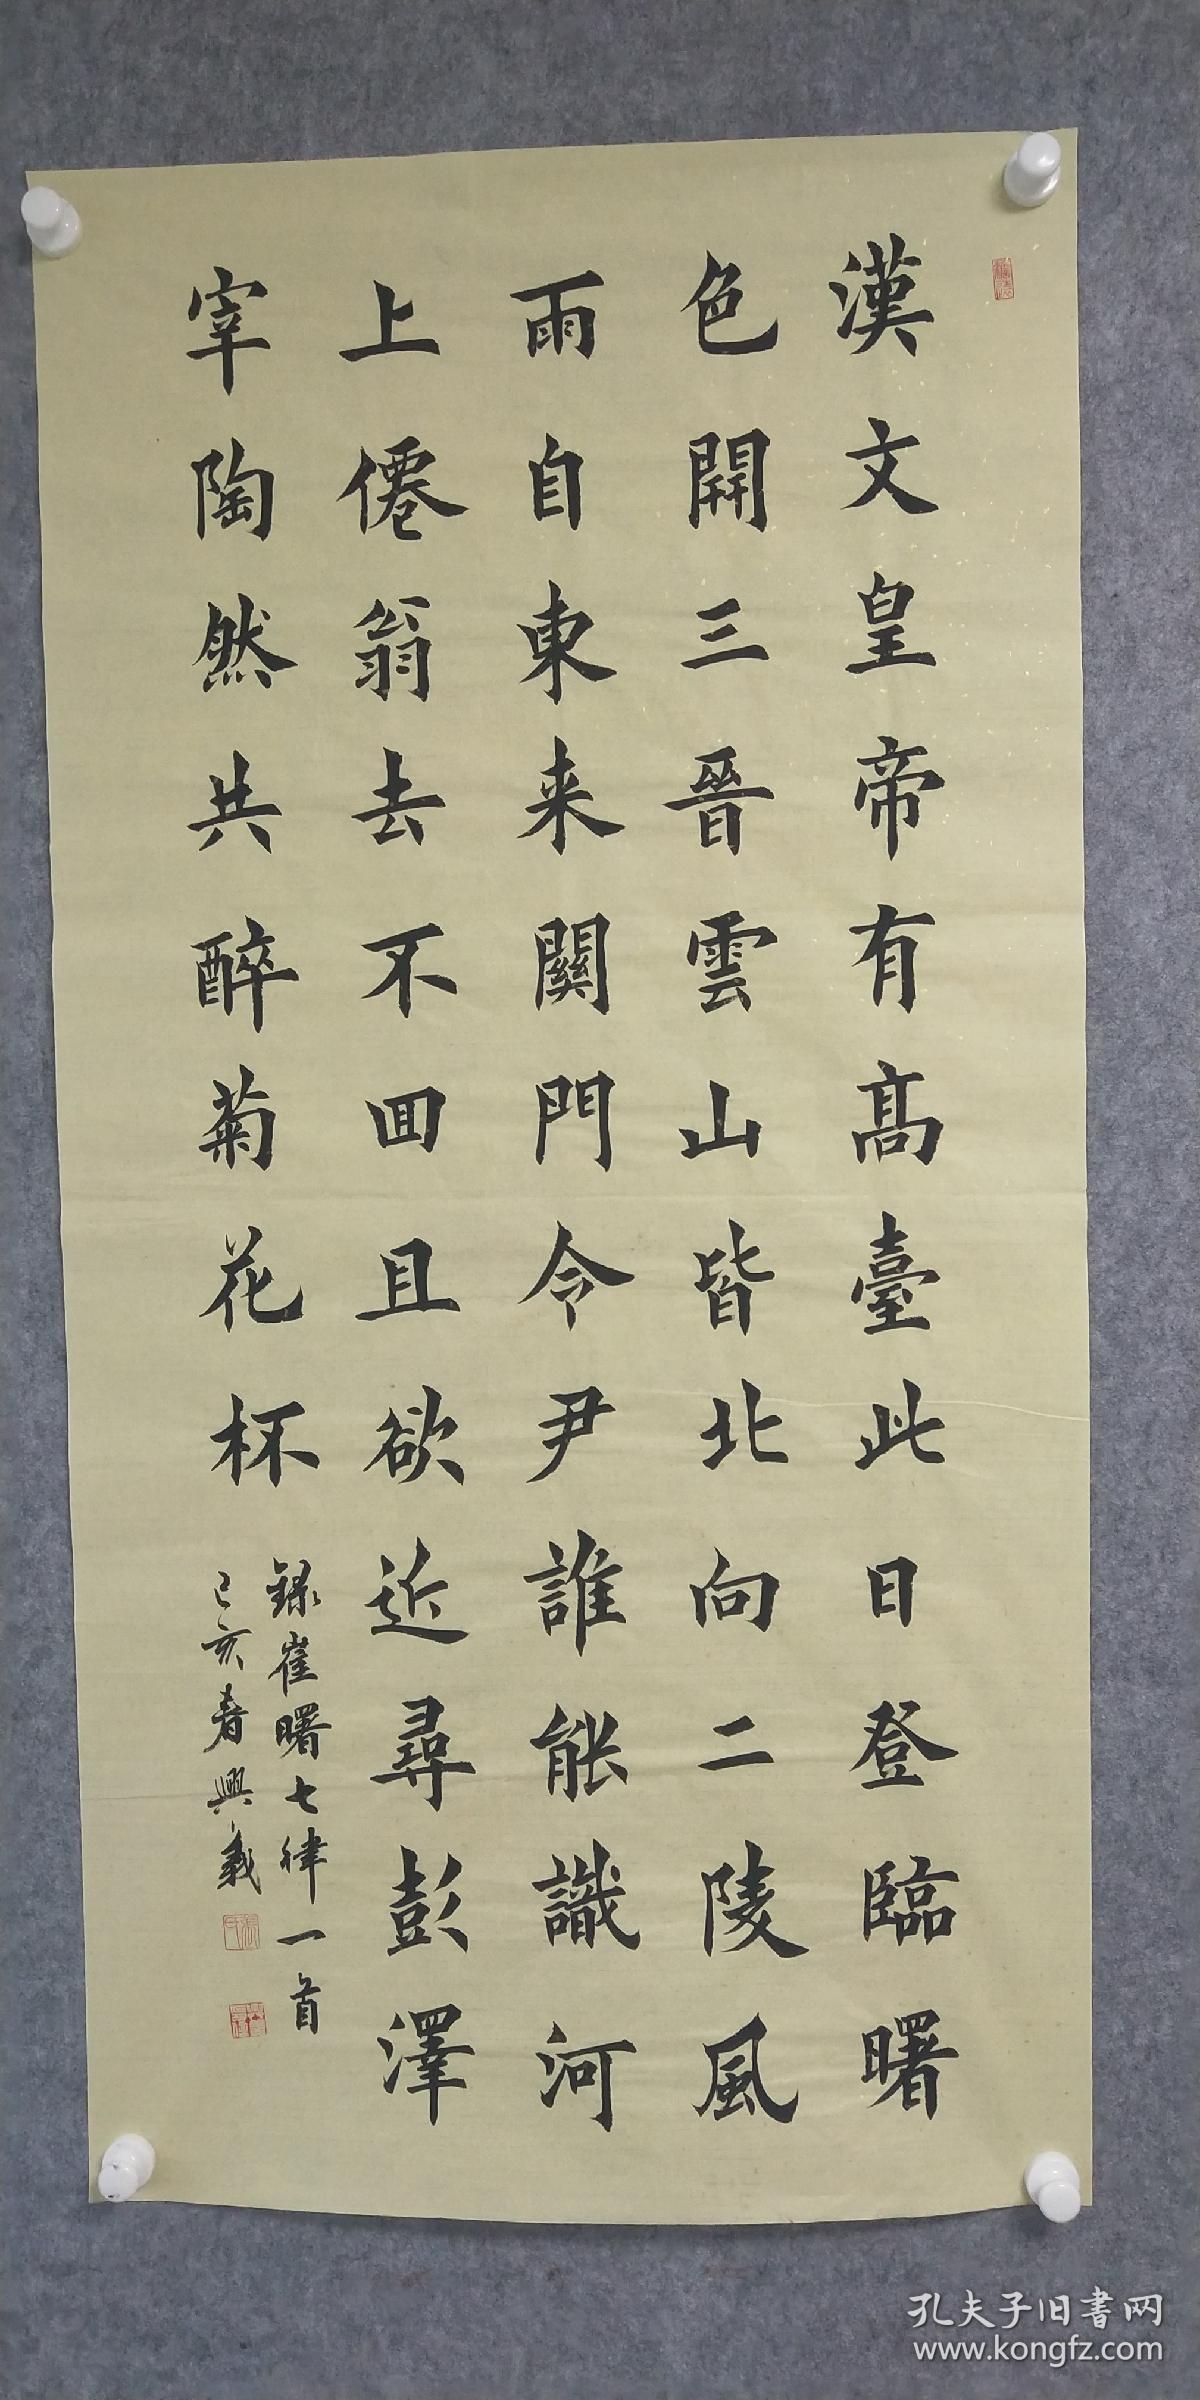 漢文皇帝有髙臺此日登臨曙
色開三晉雲山皆北向二陵風
雨自東来關門令尹誰能識河
上僊翁去不回且欲近尋彭澤
宰陶然共醉菊花杯
錄崔曙七律一首
己亥春興義
孔夫子旧書网
www.kongfz.com